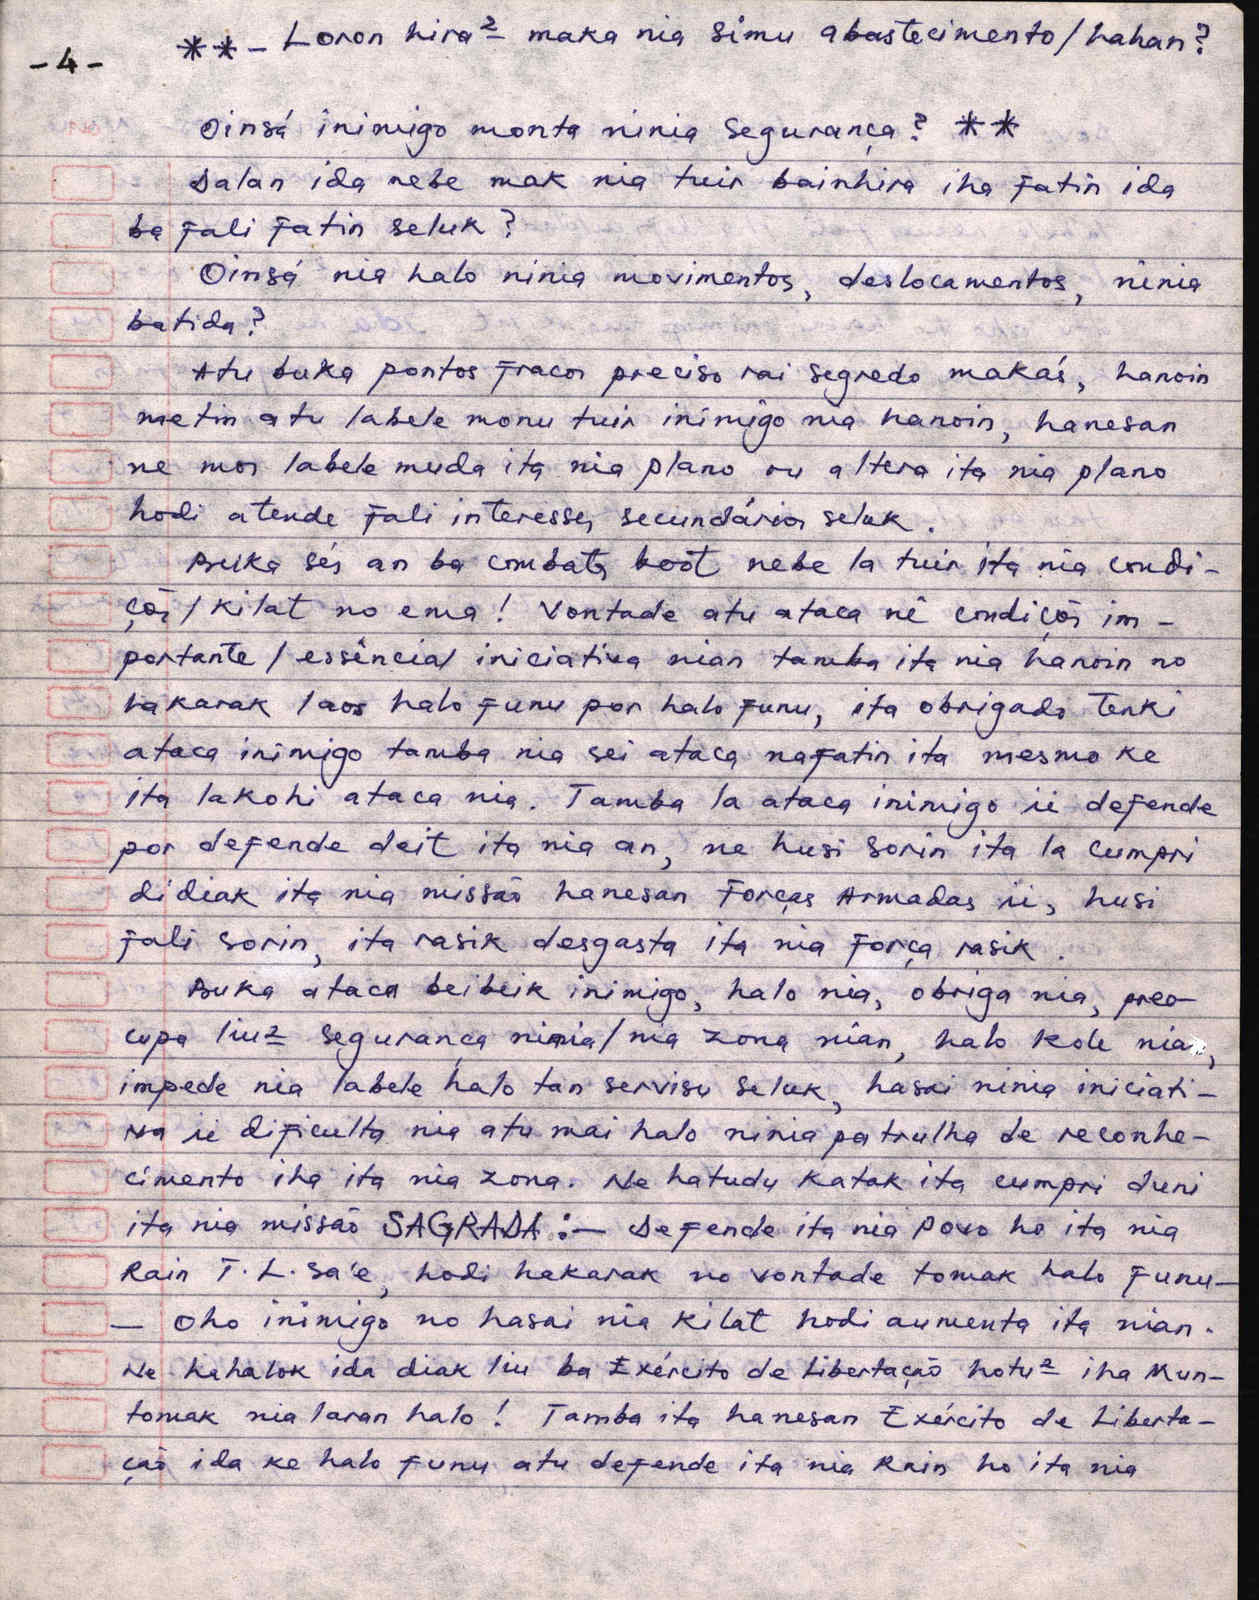 ** - Loron hira² maka nia simu abastecimento/hahan?
- 4 -
Oinsá inimigo monta ninia segurança? **
Dalan ida nebe mak nia tuir bainhira iha fatin ida
ba fali fatin seluk?
Oinsá nia halo ninia movimentos, deslocamentos, ninia
batida?
Atu buka pontos fracos preciso rai segredo makás, hanoin
metin atu labele monu tuir inimigo nia hanoin, hanesan
ne mos labele muda ita nia plano ou altera ita nia plano
hodi atende fali interesses secundários seluk.
Buka sés an ba combates boot nebe la tuir ita nia condi-
çõs/kilat no ema! Vontade atu ataca nê condiçõs im-
portante/essência/ iniciativa nian tamba ita nia hanoin no
hakarak laos halo funu por halo funu, ita obrigado tenki
ataca inimigo tamba nia sei ataca nafatin ita mesmo ke
ita lakohi ataca nia. Tamba la ataca inimigo ii defende
por defende deit ita nia an, ne husi sorin ita la cumpri
didiak ita nia missão hanesan Forças Armadas ii, husi
fali sorin, ita rasik desgasta ita nia força rasik.
Buka ataca beibeik inimigo, halo nia, obriga nia, preo-
cupa liu² segurança ninia/nia zona nian, halo kole nia,
impede nia labele halo tan servisu seluk, hasai ninia iniciati-
va ii dificulta nia atu mai halo ninia patrulha de reconhe-
cimento iha ita nia zona. Ne hatudu katak ita cumpri duni
ita nia missão SAGRADA :- Defende ita nia Povo ho ita nia
Rain T.L. Sa'e, hodi hakarak no vontade tomak halo funu-
- Oho inimigo no hasai nia kilat hodi aumenta ita nian.
Ne hahalok ida diak liu ba Exército de Libertação hotu² iha Mun-
tomak nia laran halo! Tamba ita hanesan Exército de Liberta-
ção ida ke halo funu atu defende ita nia Rain ho ita nia